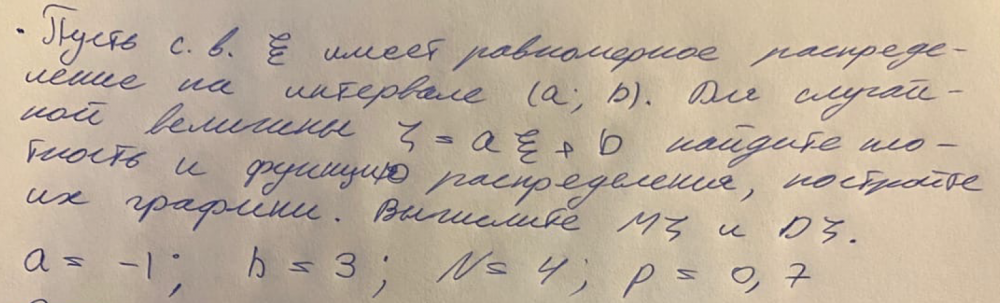 · Пусть с. в. ξ имеет равномерное распреде-
ление на интервале (a; b). Для случай-
ной величины ζ = a ξ + b найдите пло-
тность и функцию распределения, постройте
их графики. Вычислите Mζ и Dζ.
a = -1; b = 3; N = 4; p = 0,7